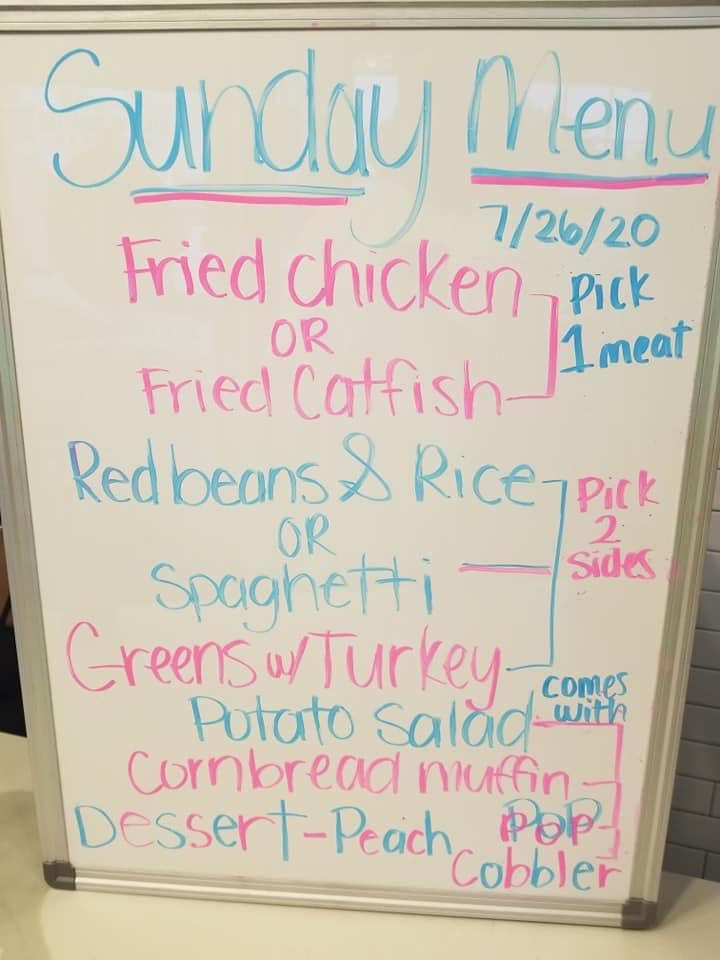 Sunday Menu
7/26/20
Fried chicken
OR
Fried Catfish
Pick
1 meat
Red beans & Rice
OR
Spaghetti
Greens w/Turkey
Pick
2
sides
comes
with
Potato Salad
Cornbread muffin
POP
Dessert-Peach
Cobbler